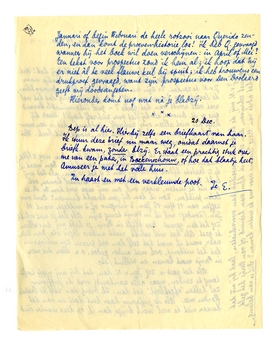 Januari of begin Februari de heele rotzooi naar Querido zen-
den, en dan komt de proevenhistorie los! Ik heb Q. gevraagd
wanneer hij het boek wil doen verschijnen: in April of zoo?
Een tekst voor prospectus zond ik hem al; ik hoop dat hij
er niet al te veel flauwe kul bij spuit; ik heb trouwens een
drukproef gevraagd, want zijn prospectus voor Een Voorland
geeft mij
Hieronder komt nog wat na je
x x x
20 Dec.
Bep is al hier. Herdij zelfs een briefkaart van haar.
Ik stuur deze brief nu maar weg, omdat daarnet je
brief kwam, zonder blzij. Er staat een prachtig stuk over
me van een pater, in Boekenschouw, of hoe dat blaadje heet.
Amuseer je met het volle huis.
In haast en met een verkleumde poot.
Je E.